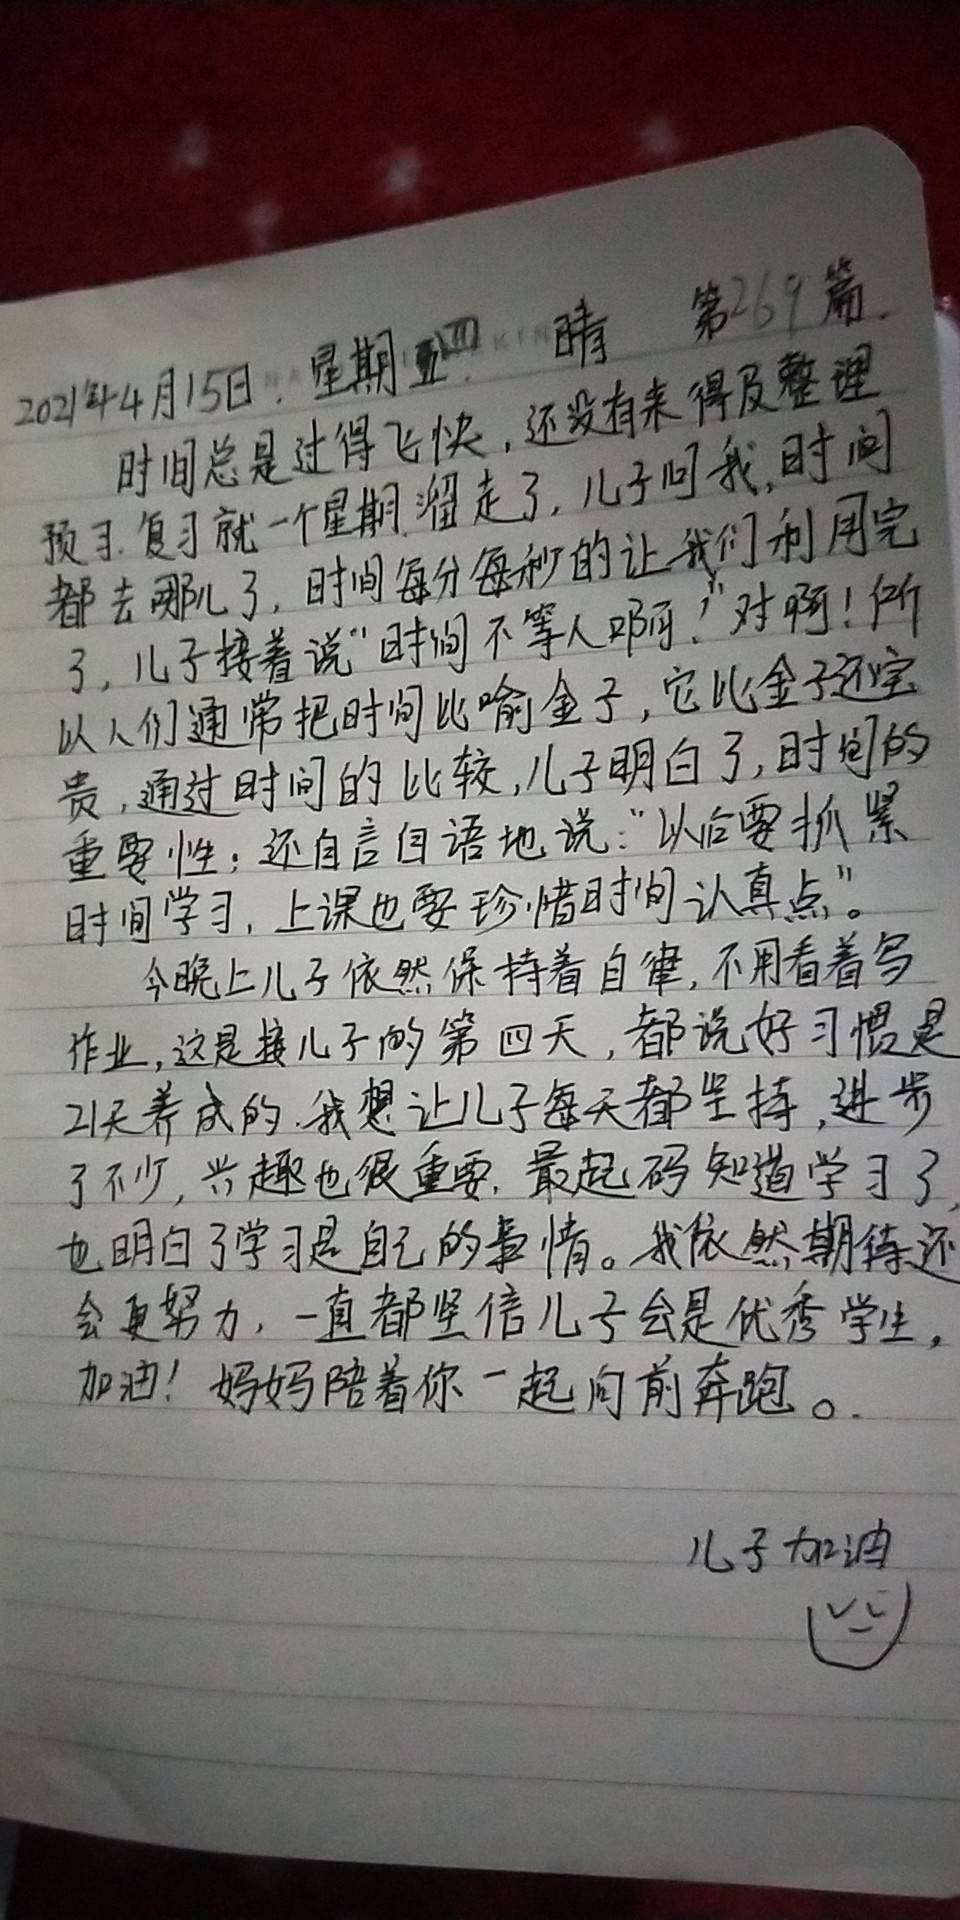 2021年4月15日. 星期四 晴 第269篇.
时间总是过得飞快,还没有来得及整理
预习.复习就一个星期溜走了,儿子问我,时间
都去哪儿了,时间每分每秒的让我们利用完
了,儿子接着说“时间不等人啊!”对啊!所
以人们通常把时间比喻金子,它比金子还宝
贵,通过时间的比较,儿子明白了,时间的
重要性;还自言自语地说:“以后要抓紧
时间学习,上课也要珍惜时间认真点”。
今晚上儿子依然保持着自律,不用看着写
作业,这是接儿子的第四天,都说好习惯是
21天养成的.我想让儿子每天都坚持,进步
了不少,兴趣也很重要.最起码知道学习了,
也明白了学习是自己的事情。我依然期待还
会更努力,一直都坚信儿子会是优秀学生,
加油!妈妈陪着你一起向前奔跑。.
儿子加油